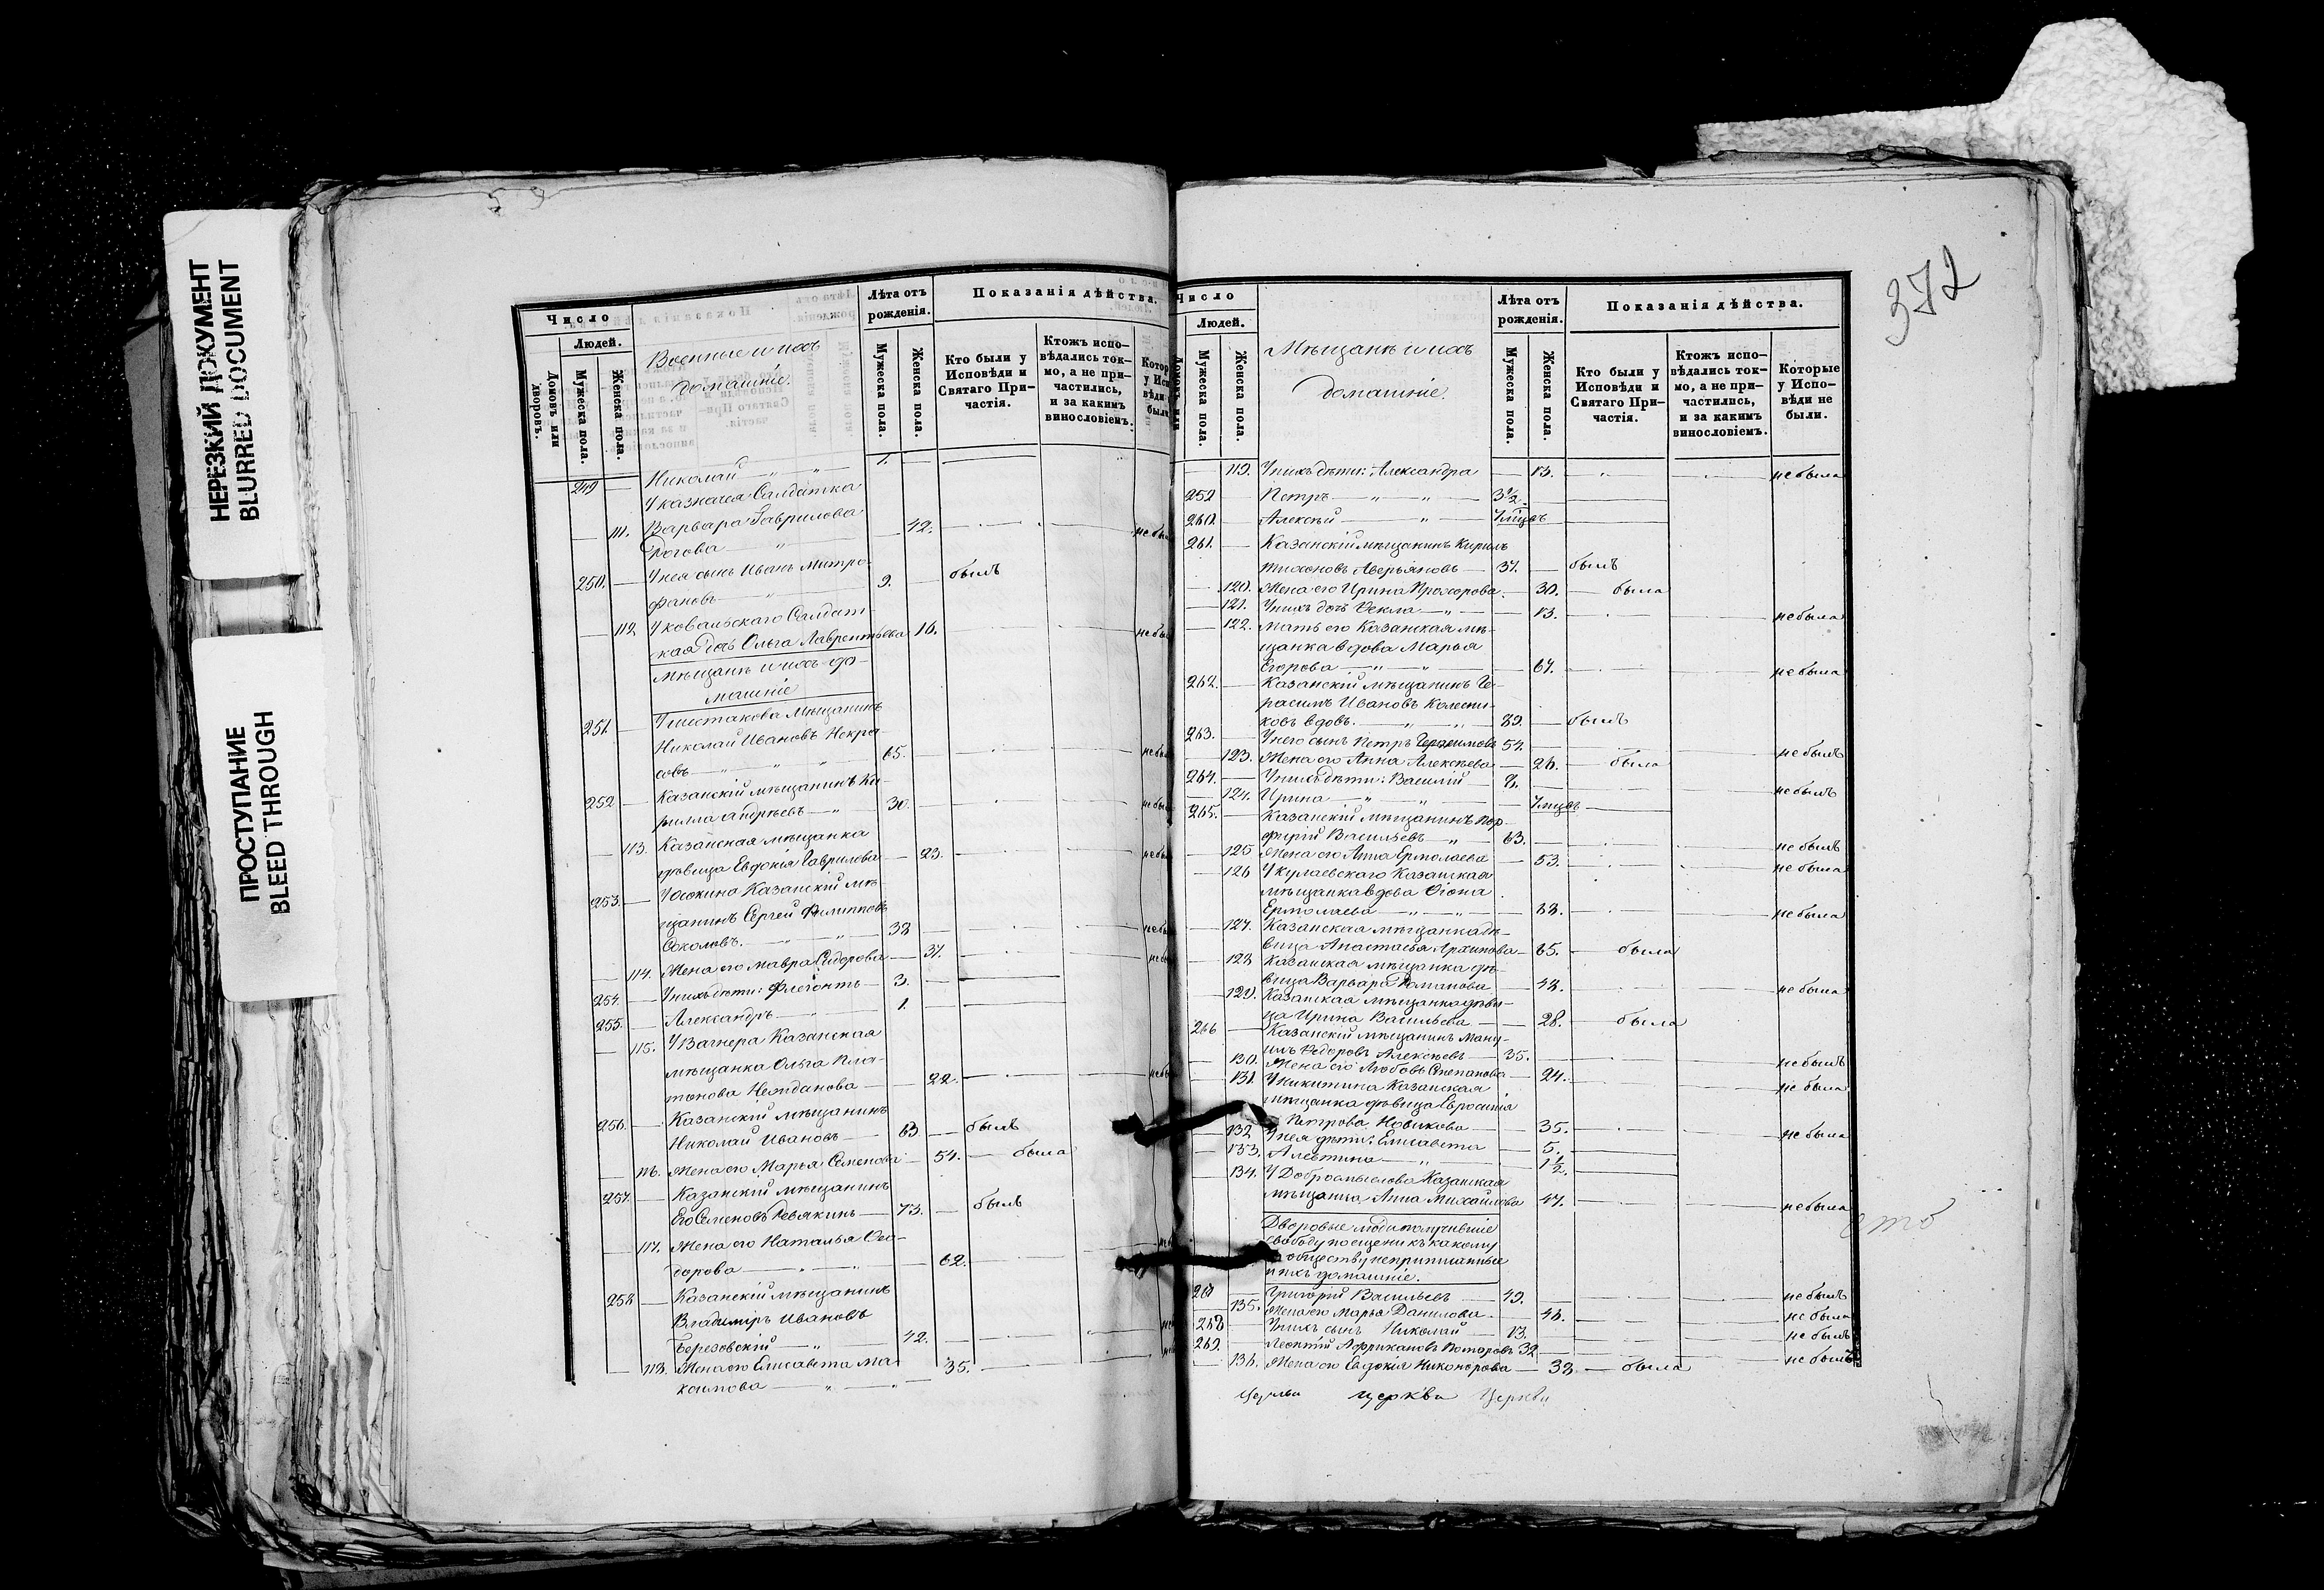 НЕРЕЗКИЙ ДОКУМЕНТ
BLURRED DOCUMENT
ПРОСТУПАНИЕ
BLEED THROUGH
Число
Людей.
Домовъ или дворовъ.
Мужеска пола.
Женска пола.
Военные и ихъ
домашніе.
Лѣта отъ
рожденія.
Мужеска пола.
Женска пола.
Показанія дѣйства.
Кто были у
Исповѣди и
Святаго При-
частія.
Ктожъ испо-
вѣдались ток-
мо, а не при-
частились,
и за какимъ
винословіемъ.
Котор
у Исп
вѣди
были
249 — Николай — 1. —
У казначея Салдатка
111. Варвара Гаврилова
Рогова — 42. — не бы
250. — У нея сынъ Иванъ Митро-
фановъ — 9. — былъ
112 У Ковальскаго Салдат
ская дочь Ольга Лаврентьева 16. — не бы
Мѣщане и ихъ до-
машніе
251. У Шестакова Мѣщанинъ
Николай Ивановъ Некра-
совъ — 65. — не бы
252 — Казанскій мѣщанинъ Ки-
рилла Андреевъ — 30. — не бы
113. Казанская мѣщанка
дѣвица Евдокія Гаврилова — 23. — не бы
253. — Казанскій мѣ
щанинъ Сергей Филипповъ
Соколовъ. — 38 — не бы
114. Жена его Мавра Сидорова — 37. — не бы
254. — У нихъ дети: Флегонтъ — 3. —
255. — Александръ — 1. —
115. У Вагнера Казанская
мѣщанка Ольга Пла-
тонова Нежданова — 22. — не бы
256. — Казанскій мѣщанинъ
Николай Ивановъ — 63 — былъ
116. Жена его Марья Семенова — 54. — была
257. — Казанскій мѣщанинъ
Семеновъ Ревякинъ — 73. — былъ
117. Жена его Наталья Ѳео-
дорова — 62. — не
258 — Казанскій мѣщанинъ
Владиміръ Ивановъ
Березовскій — 42. — не
118. Жена его Елисавета Ма
ксимова — 35. —
372
Число
Людей.
Мужеска пола.
Женска пола.
Мѣщане и ихъ
домашніе.
Лѣта отъ
рожденія.
Мужеска пола.
Женска пола.
Показанія дѣйства.
Кто были у
Исповѣди и
Святаго При-
частія.
Ктожъ испо-
вѣдались ток-
мо, а не при-
частились,
и за какимъ
винословіемъ.
Которые
у Испо-
вѣди не
были.
119. У нихъ дѣти: Александра — 13. — не была
259 — Петръ — 3½ —
260. — Алексѣй — 7 мцвъ —
261. — Казанскій мѣщанинъ Кирилъ
Тихоновъ Аверьяновъ — 37. — былъ
120. Жена его Ирина Прохорова — 30. — была
121. У нихъ дочь Ѳекла — 13. — не была
122. Мать его Казанская мѣ-
щанка вдова Марья
Егорова — 67. — не была
262. — Казанскій мѣщанинъ Ге-
расимъ Ивановъ Колесни-
ковъ вдовъ. — 89. — былъ
263. — У него сынъ Петръ Герасимовъ 54. — не былъ
123. Жена его Анна Алексѣева — 26. — была
264. — У нихъ дѣти: Василій — 8. — не былъ
124. Ирина — 7 мцвъ —
265. — Казанскій мѣщанинъ Пор-
фирій Васильевъ — 63. — не былъ
125 Жена его Анна Ермолаева — 53. — не была
126 У Кулаевскаго Казанская
мѣщанка вдова
Ермолаева — 38. — не была
127. Казанская мѣщанка дѣ-
вица Анастасья Архипова — 65. — была
128 Казанская мѣщанка дѣ-
вица Варвара Романова — 48. — не была
129. Казанская мѣщанка дѣви-
ца Ирина Васильева — 28. — была
266 — Казанскій мѣщанинъ Ману-
илъ Ѳедоровъ Алексѣевъ — 35. — не былъ
130. Жена его Любовь Степанова — 24. — не была
131. У Никитина Казанская
мѣщанка дѣвица Евросинія
Петрова Новикова — 35. — не была
132 У нея дѣти: Елисавета — 5. —
133. Алевтина — 1½. —
134. У Добросмыслова Казанская
мѣщанка Анна Михайлова 47. — не была
Дворовые люди получившіе
свободу но еще ни къ какому
обществу неприписанные
и ихъ домашніе.
267 Григорій Васильевъ — 49. — не былъ
135. Жена его Марья Данилова. — 48. — не была
268 У нихъ сынъ Николай — 13. — не былъ
269. Леонтій Африкановъ 32 — не былъ
136. Жена его Евдокія Никонорова — 38. — была
церкви церкви